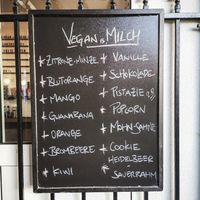 VEGAN & MILCH
ZITRONE-MINZE
BLUTORANGE
MANGO
GUANABANA
ORANGE
BROMBEERE
KIWI
VANILLE
SCHOKOLADE
PISTAZIE
POPCORN
MOHN-SAHNE
COOKIE
HEIDELBEER-
SAUERRAHM